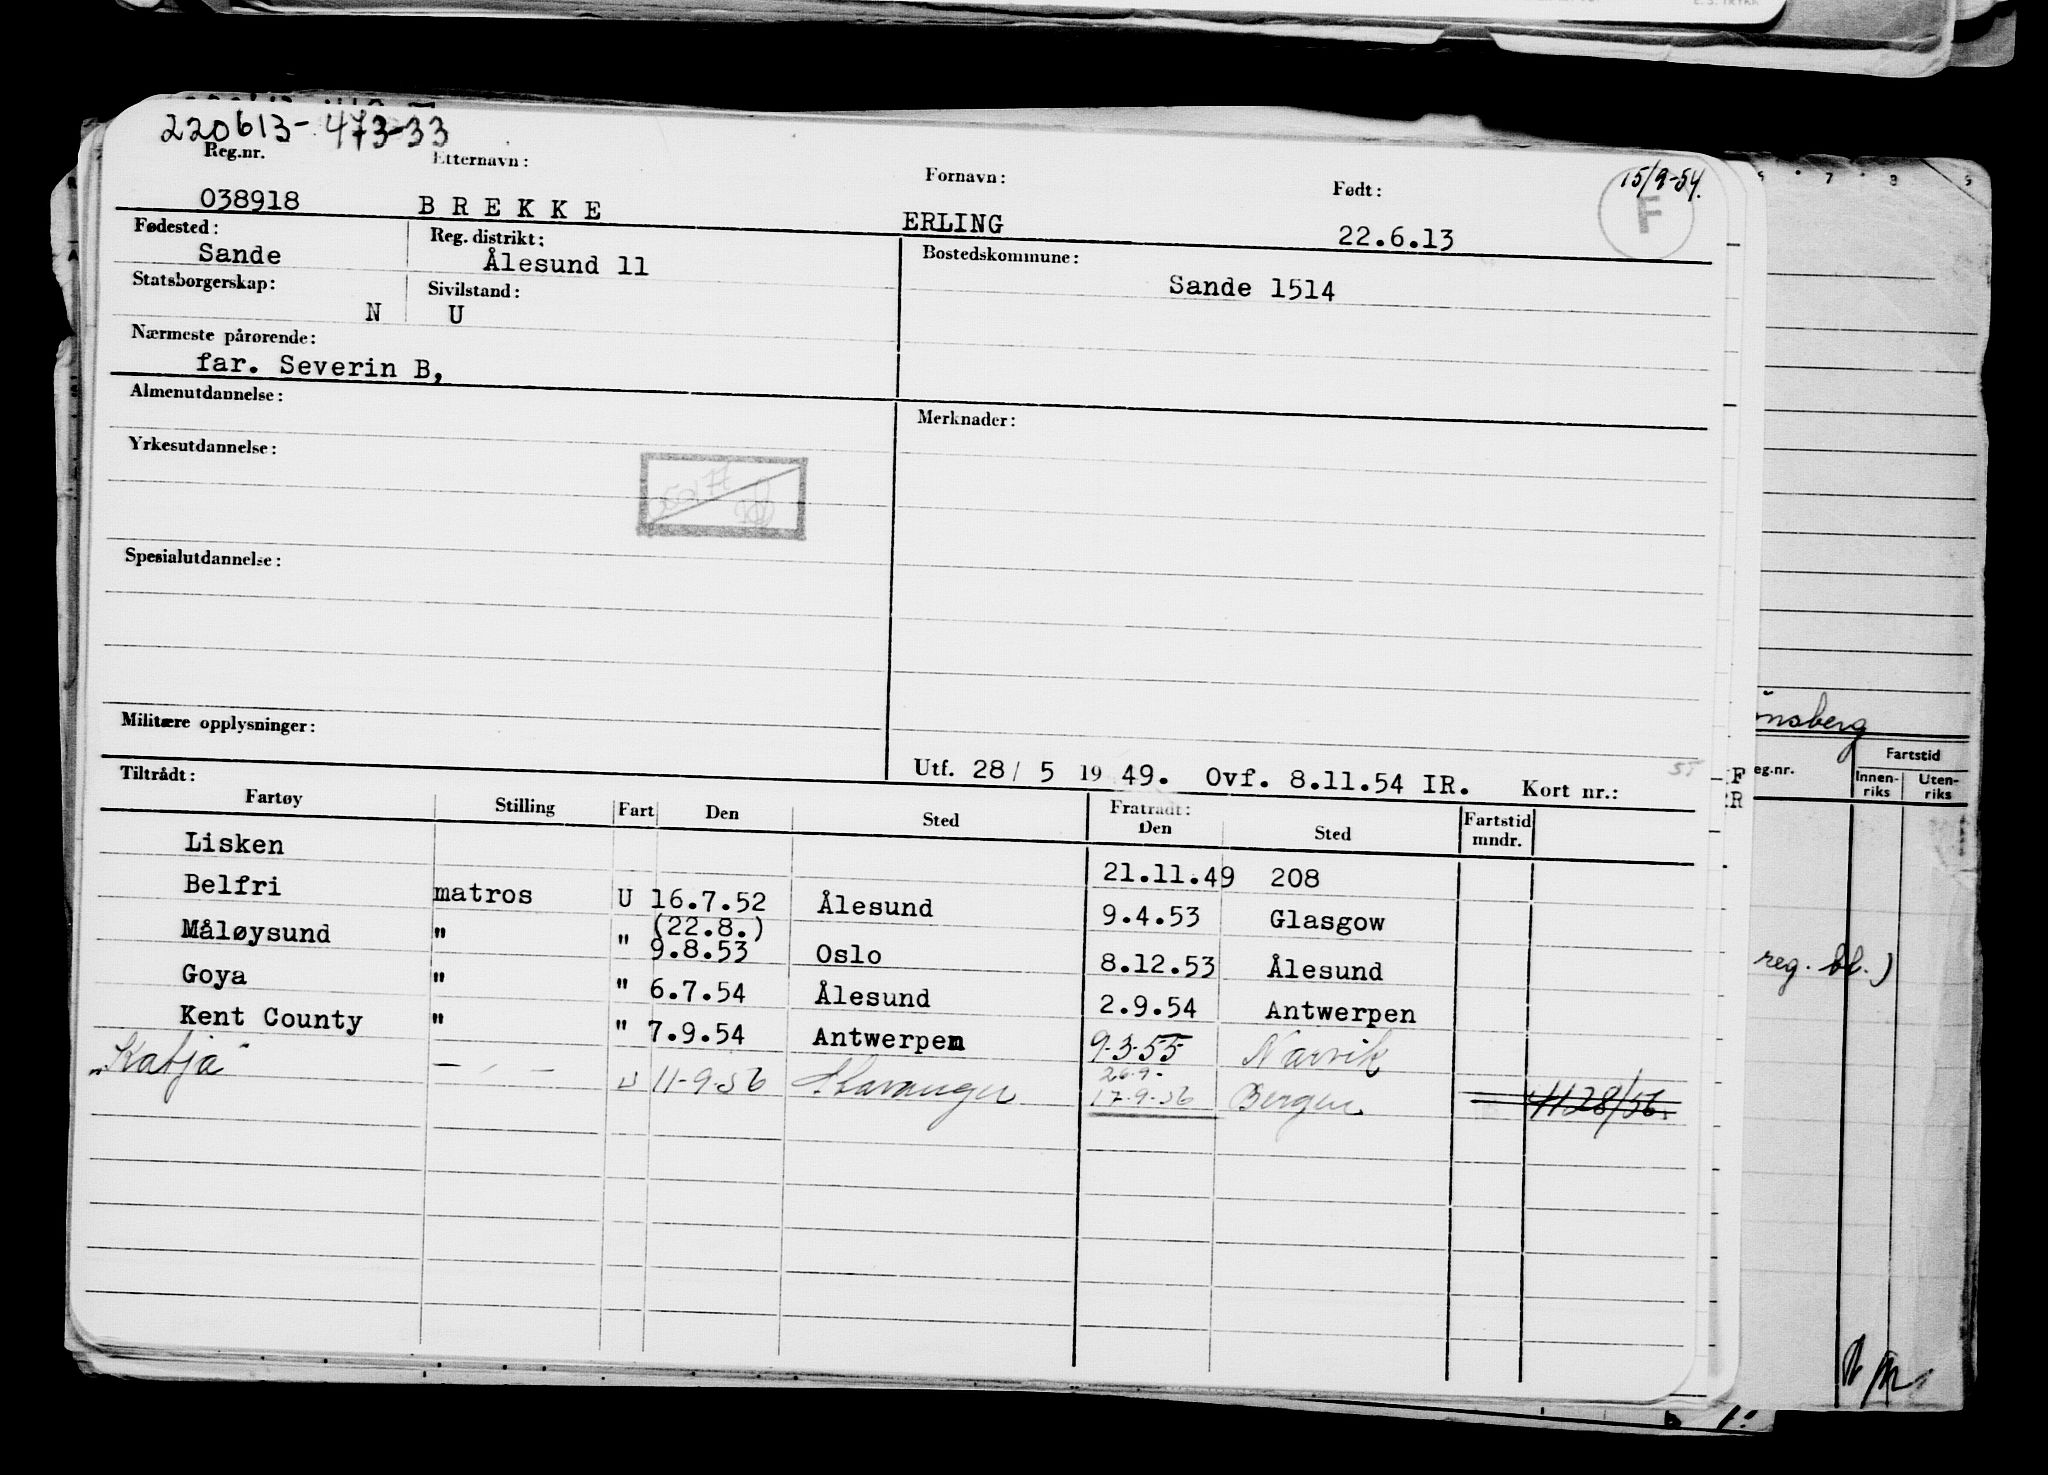 220613-473-33
Reg.nr. Etternavn: Fornavn: Født: 15/9-54.
038918 BREKKE ERLING 22.6.13 F
Fødested: Reg. distrikt: Bostedskommune:
Sande Ålesund 11 Sande 1514
Statsborgerskap: Sivilstand:
N U
Nærmeste pårørende:
far. Severin B,
Almenutdannelse: Merknader:
Yrkesutdannelse:
Spesialutdannelse:
Militære opplysninger:
Utf. 28/ 5 19 49. Ovf. 8.11.54 IR. Kort nr.:
Tiltrådt: Fratrådt:
Fartøy Stilling Fart Den Sted Den Sted Fartstid mndr.
Lisken 21.11.49 208
Belfri matros U 16.7.52 Ålesund 9.4.53 Glasgow
(22.8.)
Måløysund " " 9.8.53 Oslo 8.12.53 Ålesund
Goya " " 6.7.54 Ålesund 2.9.54 Antwerpen
Kent County " " 7.9.54 Antwerpen 9-3-55 Narvik
26.9-
"Katja" - " - U 11-9-56 Stavanger 17-9-56 Bergen 4128/56.
ønsberg
eg.nr. Fartstid
Innenriks Utenriks
reg. bl.)